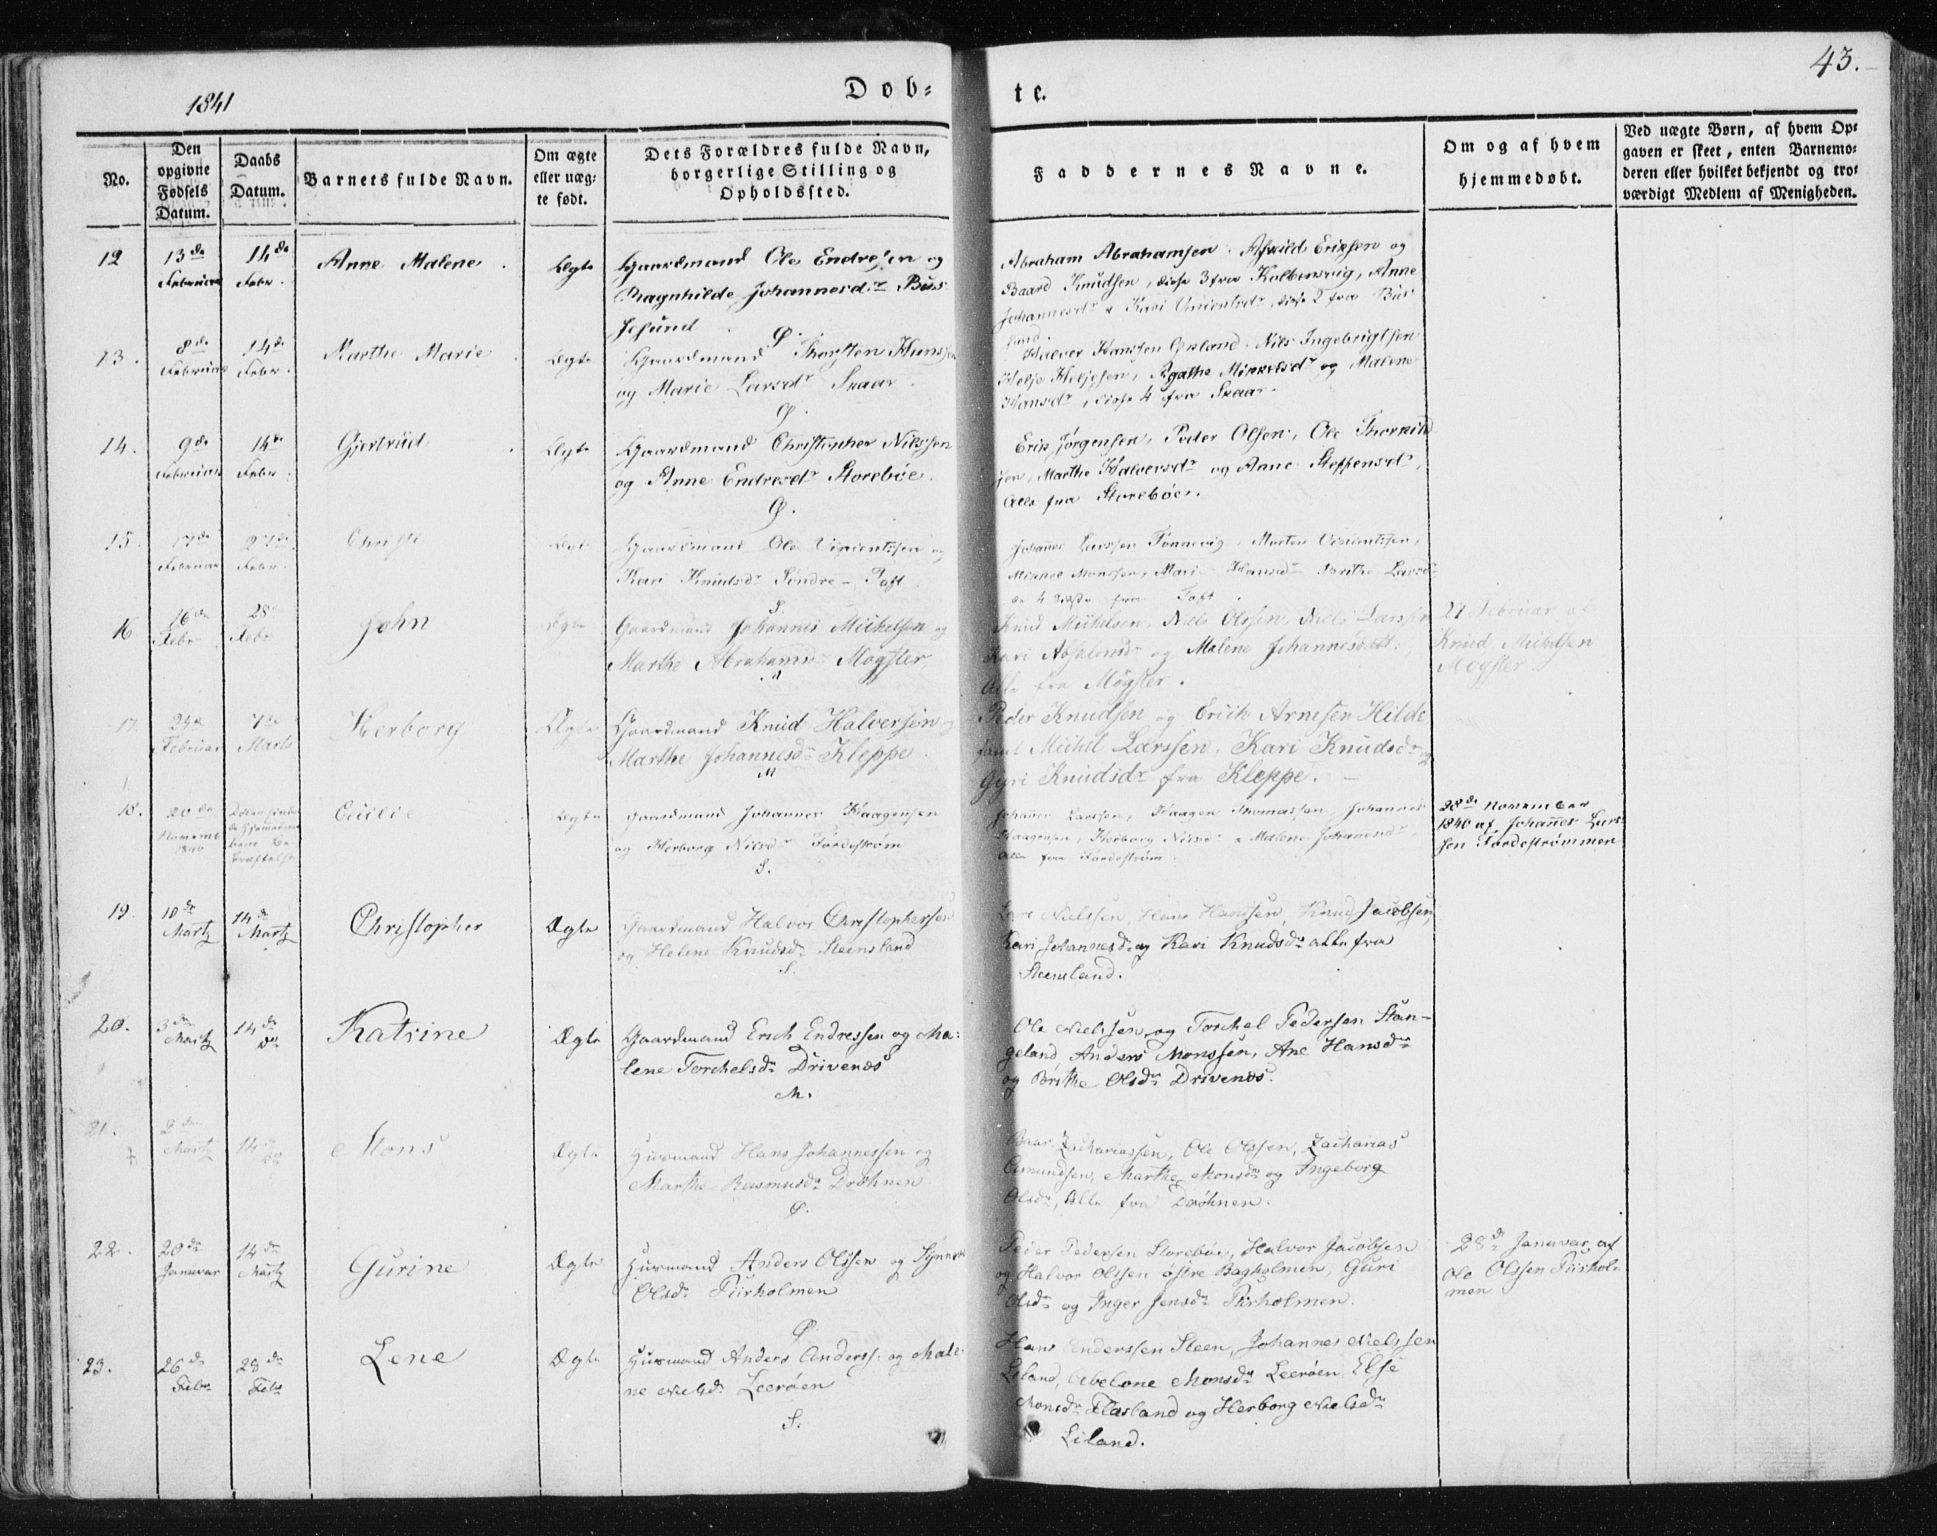 1841
Døb-
te.
43.
No.
Den opgivne Fødsels Datum.
Daabs Datum.
Barnets fulde Navn.
Om ægte eller uægte født.
Dets Forældres fulde Navn, borgerlige Stilling og Opholdssted.
Faddernes Navne.
Om og af hvem hjemmedøbt.
Ved uægte Børn, af hvem Opgaven er skeet, enten Barnemoderen eller hvilket bekjendt og troværdigt Medlem af Menigheden.
12
13de Februar
14de Febr.
Anne Malene
Ægte
Gaardmand Ole Endresen og
Ragnhilde Johannesdr
Abraham Abrahamsen. Eriksen og
Baard Knudsen, disse 3 fra Anne
Johannesdr & Kari disse 2 fra
13.
8de Februar
14de Febr.
Marthe Marie
Ægte
Gaardmand Thorsten
og Marie Larsdr Skaar.
Ø.
Halvor Hanssen Nils Ingebrigtsen
Helje Heljesen, Agathe Mikkelsdr og Malene
Hansdr, disse 4 fra Skaar.
14.
9de Februar
14de Febr.
Gjertrüd
Ægte
Gaardmand Christopher Nilssen
og Anne Endresdr Storebøe.
Ø.
Erik Jørgensen, Peder Olsen, Ole
Marthe Halversdr og Anne Steffensdr,
Alle fra Storebøe.
15.
17de Februar
27de Febr.
Christi
Ægte
Gaardmand Ole Vincentssen og
Kari Knudsdr Søndre-Toft.
S.
Johannes Larssen Morten Vincentssen,
Mikkel Monssen, Mari Hansdr Brithe Larsdr
de 4 sidste fra Toft.
16
16de Febr
28 Febr
John
Ægte
Gaardmand Johannes Michelsen og
Marthe Abrahamsdr Møgster
M
Knud Michelsen, Niels Olssen, Niels Larssen
Kari Absalonsdr og Malene Johannesdatt.
Alle fra Møgster.
27 Februar af
Knud Michelsen
Møgster.
17.
24de Februar
7de Marts
Herborg
Ægte
Gaardmand Knud Halversen og
Marthe Johannesdr Kleppe.
M
Peder Knudsen og Erich Arnesen Hilde
samt Michel Larssen, Kari Knudsdr og
Gyri Knudsdr fra Kleppe.
18.
20de Novemb 1840
Cecilie
Ægte
Gaardmand Johannes Haagensen
og Herborg Nilsdr Førdestrøm
S.
Johannes Larssen, Haagen Thomassen, Johannes
Haagensen, Herborg Nilsdr & Malene Johannesdr,
Alle fra Førdestrøm.
28de November
1840 af Johannes Lars-
sen Førdestrømmen
19.
10de Martz
14de Martz
Christopher
Ægte
Gaardmand Halvor Christophersen
og Helene Knudsdr Steensland
S.
Lars Nielssen, Hans Hanssen, Knud Jacobsen,
Kari Johannesdr og Kari Knudsdr alle fra
Steensland.
20.
3de Martz
14de do
Katrine
Ægte
Gaardmand Erich Endressen og Ma-
lene Torchelsdr Drivenæs
M.
Ole Nielssen og Torchel Pedersen Stan-
geland, Anders Monssen, Ane Hansdr
og Brithe Olsdr Drivenæs.
21.
2den Martz
14de do
Mons
Ægte
Huusmand Hans Johannessen og
Marthe Rasmusdr Drøhnen
Ø.
Baar Zachariassen, Ole Olssen, Zacharias
Amundsen, Marthe Monsdr og Ingeborg
Olsdr, Alle fra Drøhnen.
22.
20de Januvar
14de Martz
Gurine
Ægte
Huusmand Anders Olssen og Synneve
Olsdr Türholmen
Ø.
Peder Pedersen Storebøe, Halvor Jacobsen
og Halvor Olssen østre Bagholmen, Guri
Olsdr og Inger Jensdr Türholmen.
28de Januvar af
Ole Olssen Türhol-
men
23.
26de Febr
28de Febr
Lene
Ægte
Huusmand Anders Anderss. og Male-
ne Nielsdr Leerøen
S.
Hans Anderssen Steen, Johannes Nielssen
Liland, Abelone Monsdr Leerøen, Else
Monsdr Flæsland og Herborg Nielsdr
Liland.